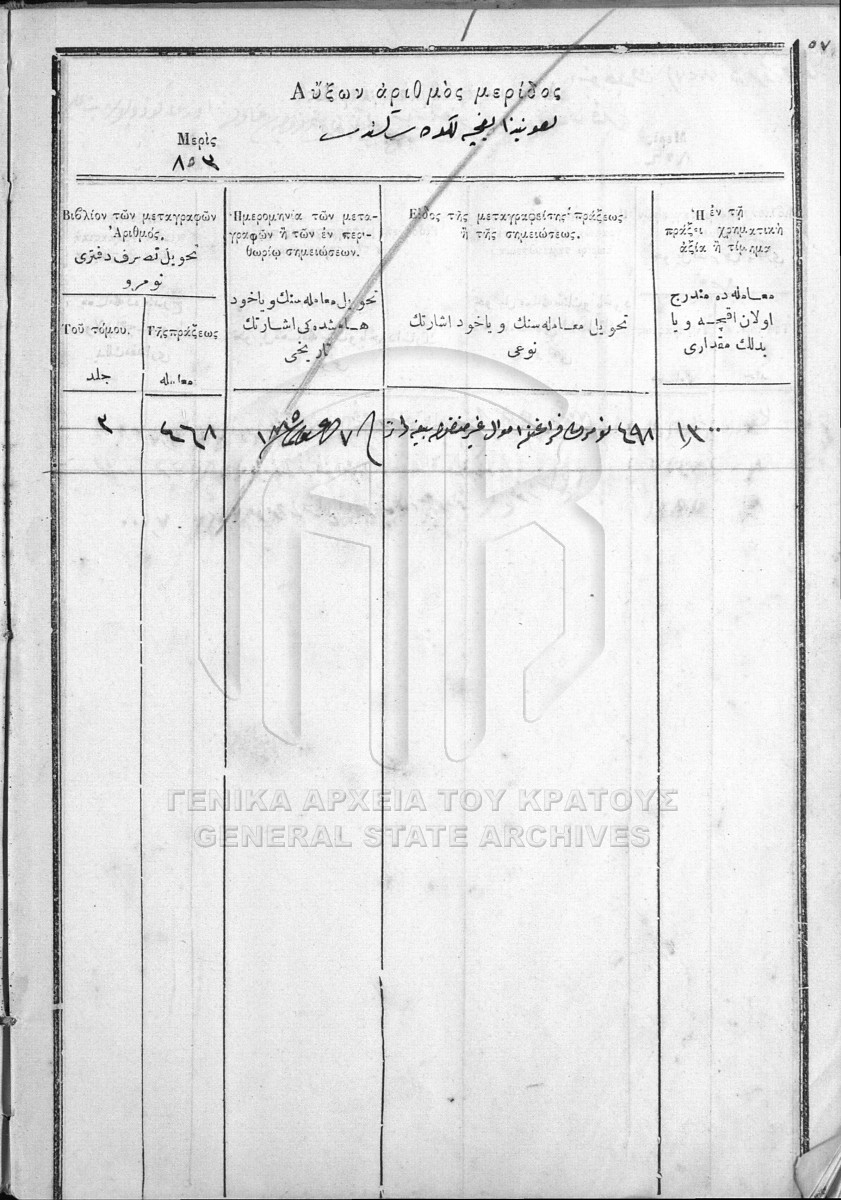 ٥٧
Αὔξων ἀριθμὸς μερίδος
Μερὶς
٨٥٣
Βιβλίον τῶν μεταγραφῶν
Ἀριθμός.
تحویل تصرف دفتری
نومرو
Τοῦ τόμου.
جلد
Τῆς πράξεως
معامله
Ἡμερομηνία τῶν μετα-
γραφῶν ἢ τῶν ἐν περι-
θωρίῳ σημειώσεων.
تحویل معامله سنك ویاخود
هامشده كی اشارتك
تاریخی
Εἶδος τῆς μεταγραφείσης πράξεως
ἢ τῆς σημειώσεως.
تحویل معامله سنك ویاخود اشارتك
نوعی
Ἡ ἐν τῇ
πράξει χρηματικὴ
ἀξία ἢ τίμημα
معامله ده مندرج
اولان اقچه ویا
بدلك مقداری
٣
٤٦٨
٤٩٨ نومرولی
ΓΕΝΙΚΑ ΑΡΧΕΙΑ ΤΟΥ ΚΡΑΤΟΥΣ
GENERAL STATE ARCHIVES